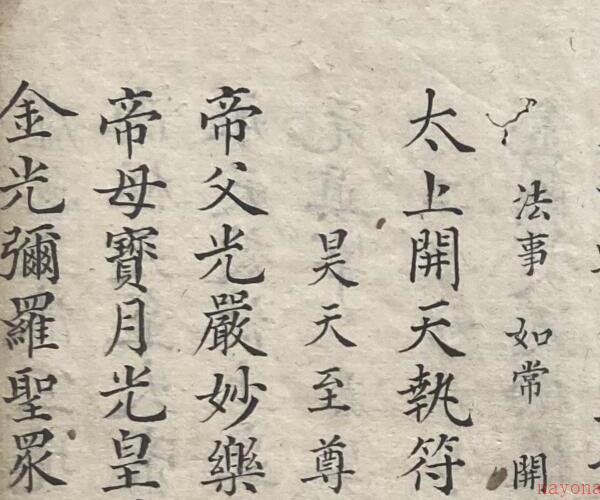 法事 如常 開
太上開天執符
昊天至尊
帝父光嚴妙樂
帝母寶月光皇
金光彌羅聖眾
nayona